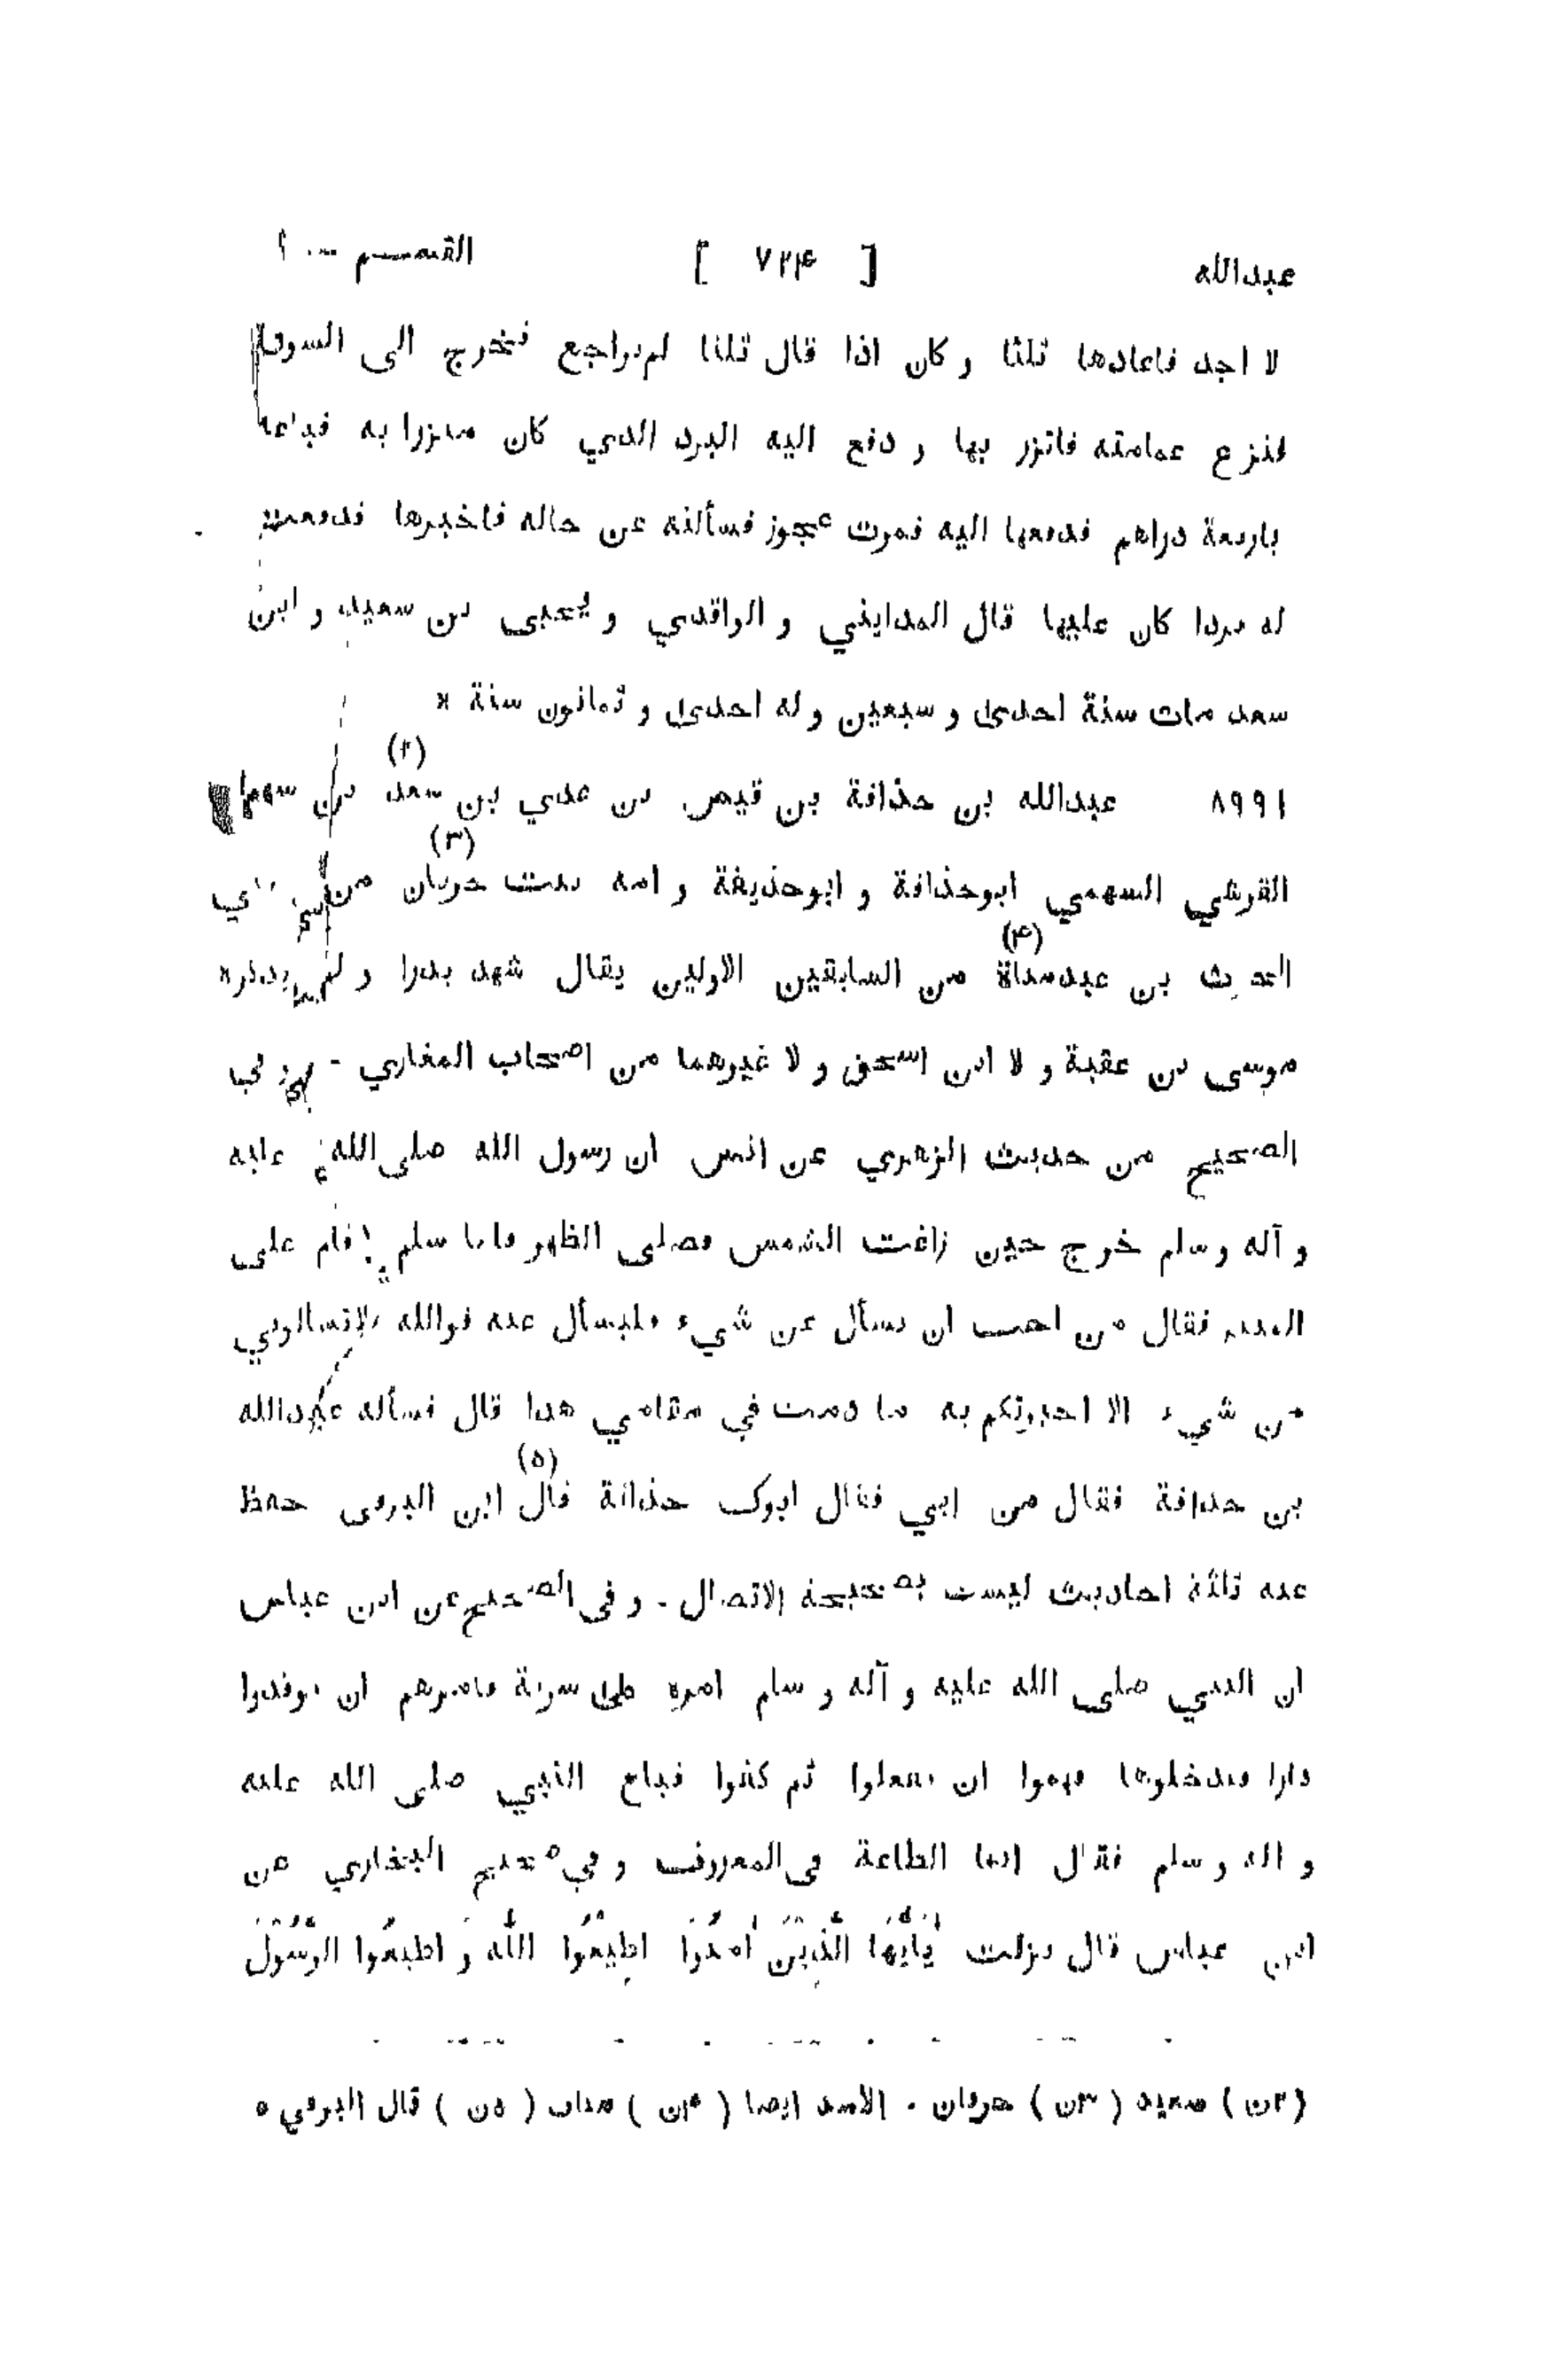 عبدالله [ ٧٢٤ ] القسم ١
لا اجد فاعادها ثلثا و كان اذا قال ثلثا لم يراجع فخرج الى السوق
فنزع عمامته فاتزر بها و دفع اليه البرد الذي كان متزرا به فباعه
باربعة دراهم فدفعها اليه فمرت عجوز فسألته عن حاله فاخبرها فدفعت
له بردا كان عليها قال المدايني و الواقدي و يحيى بن سعيد و ابن
سعد مات سنة احدى و سبعين و له احدى و ثمانون سنة *
٨٩٩١ عبدالله بن حذافة بن قيس بن عدي بن سعد (٢) بن سهم
القرشي السهمي ابوحذافة و ابوحذيفة و امه بنت حرثان (٣) من بني
الحرث بن عبدمناة (٤) من السابقين الاولين يقال شهد بدرا و لم يذكره
موسى بن عقبة و لا ابن اسحق و لا غيرهما من اصحاب المغازي - في
الصحيح من حديث الزهري عن انس ان رسول الله صلى الله عليه
و آله و سلم خرج حين زاغت الشمس فصلى الظهر فلما سلم قام على
المنبر فقال من احب ان يسأل عن شيء فليسأل عنه فوالله لاتسألوني
عن شيء الا اخبرتكم به ما دمت في مقامي هذا قال فسأله عبدالله
بن حذافة فقال من ابي فقال ابوك حذافة قال (٥) ابن البرقى حفظ
عنه ثلثة احاديث ليست بصحيحة الاتصال - و فى الصحيح عن ابن عباس
ان النبي صلى الله عليه و آله و سلم امره على سرية فامرهم ان يوقدوا
نارا فيدخلوها فهموا ان يفعلوا ثم كفوا فبلغ النبي صلى الله عليه
و اله و سلم فقال انما الطاعة فى المعروف و في صحيح البخاري عن
ابن عباس قال نزلت يٰأَيُّهَا الَّذِيْنَ اٰمَنُوْا اَطِيْعُوا اللّٰهَ وَ اَطِيْعُوا الرَّسُوْلَ
(٢ن) سعيد (٣ن) حرثان - الاسد ايضا (٤ن) مناف (٥ن) قال البرقي *